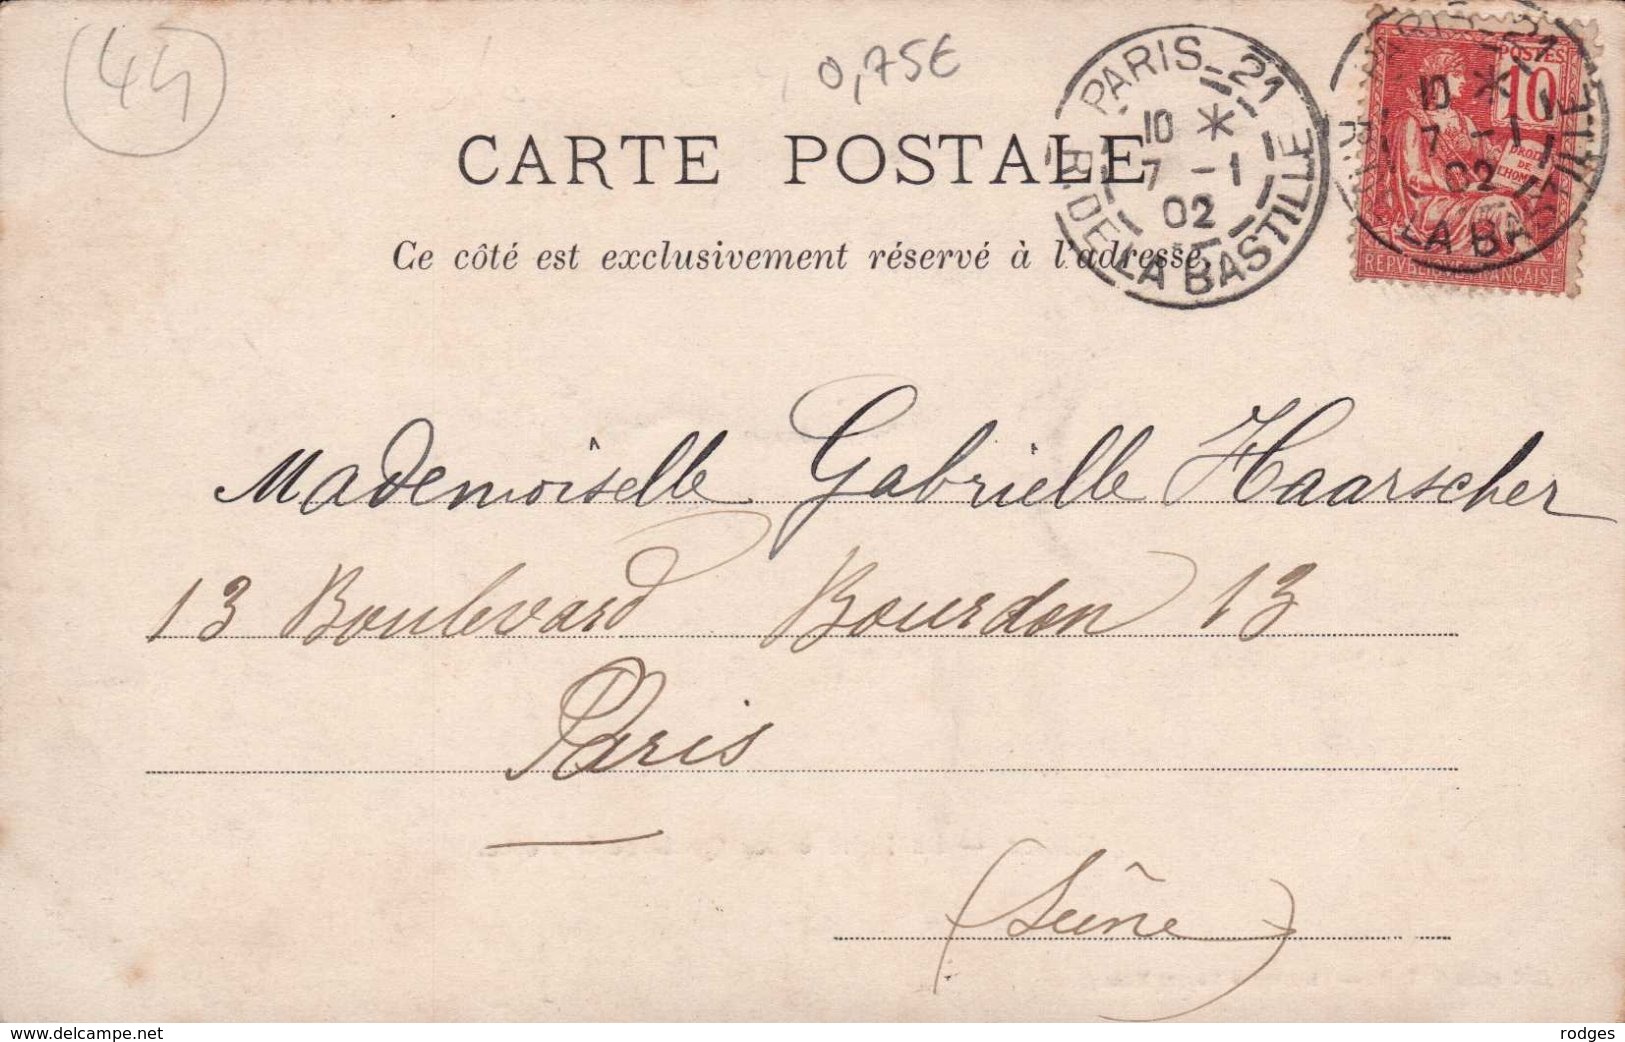 44
0,75€
CARTE POSTALE
Ce côté est exclusivement réservé à l'adresse.
PARIS - 21
10 *
7 - 1
02
R. DE LA BASTILLE
POSTES
10
DROITS
DE
L'HOMME
REPVBLIQUE FRANÇAISE
10 *
7 - 1
02
LA BASTILLE
Mademoiselle Gabrielle Haarscher
13 Boulevard Bourdon 13
Paris
(Seine)
www.delcampe.net
rodges